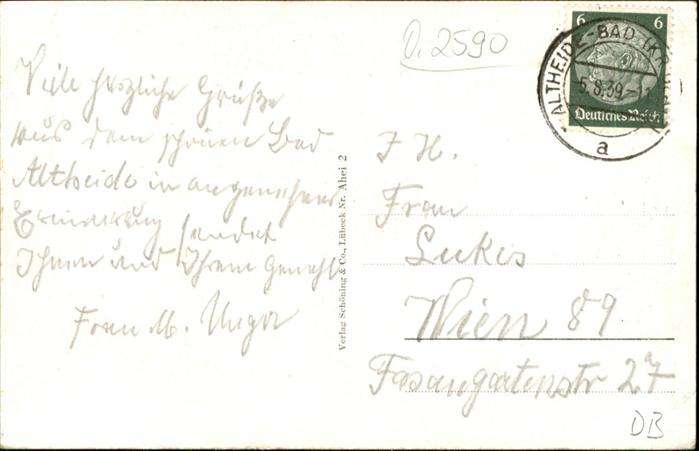 O. 2590
6 6
ALTHEIDE-BAD
5.8.39
Deutsches Reich
a
Viele herzliche Grüße
aus dem schönen Bad
Altheide in angenehmer
Erinnerung sendet
Ihnen und Ihrem Gemahl
Frau M. Unger
Verlag Schöning & Co., Lübeck Nr. Ahei 2
I H.
Frau
Lukis
Wien 89
Fasangartenstr 27
DB